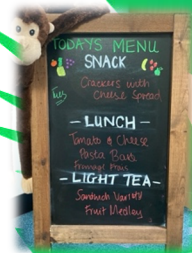 TODAYS MENU
SNACK
Crackers with
Cheese Spread
Tues
— LUNCH —
Tomato & Cheese
Pasta Bake
Fromage Frais
— LIGHT TEA —
Sandwich Variety
Fruit Medley